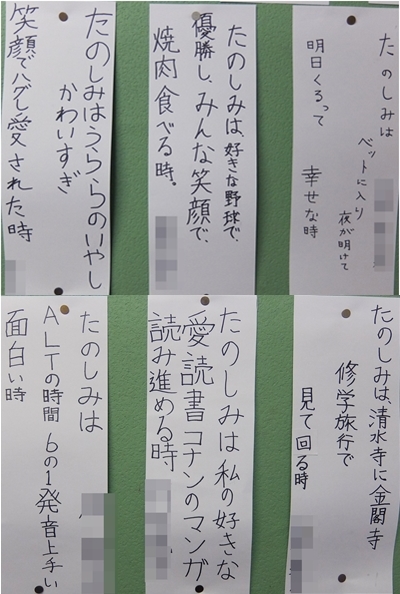 たのしみは
ベットに入り
夜が明けて
明日くるって 幸せな時
たのしみは、好きな野球で、
優勝し、みんな笑顔で、
焼肉食べる時。
たのしみはうららのいやし
かわいすぎ
笑顔でハグし愛された時
たのしみは、清水寺に金閣寺
修学旅行で
見て回る時
たのしみは私の好きな
愛読書コナンのマンガ
読み進める時
たのしみは
ALTの時間 6の1発音上手い
面白い時